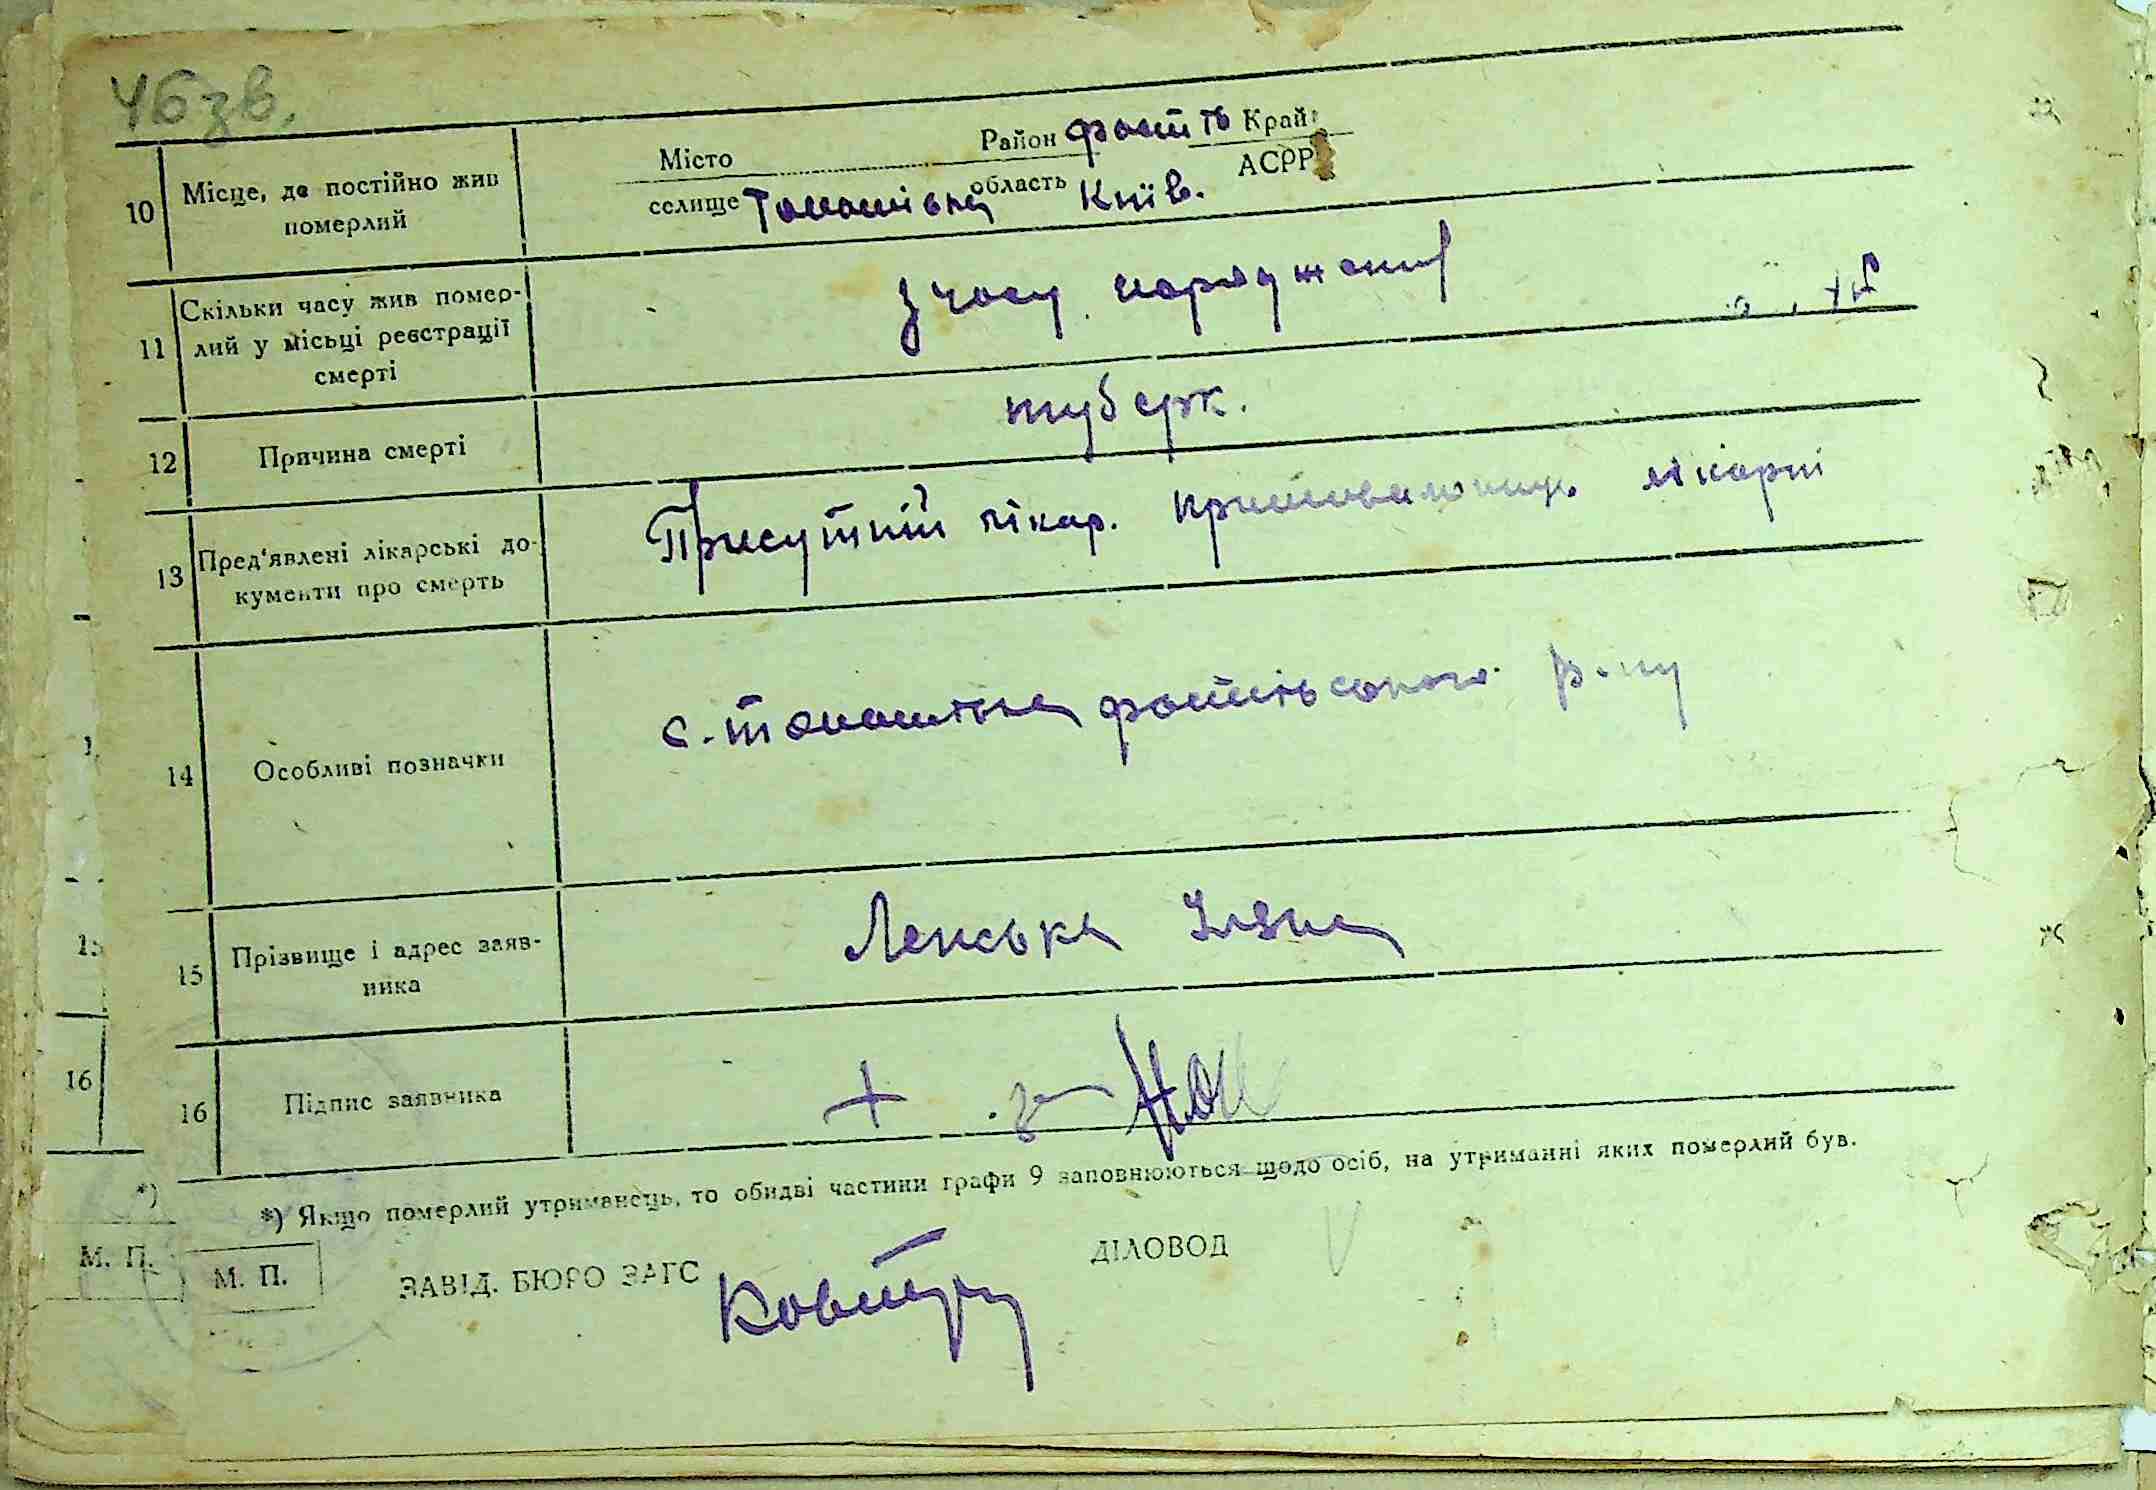 46зв.
10 Місце, де постійно жив померлий
Місто Район фастів Край
селище Томашівка область Київ. АСРР
11 Скільки часу жив помер-
лий у місьці реєстрації
смерті
з часу народження
12 Причина смерті
туберк.
13 Пред'явлені лікарські до-
кументи про смерть
Присутній лікар. лікарні
14 Особливі позначки
с. томашівка р-ну
15 Прізвище і адрес заяв-
ника
Ленська Уляна
16 Підпис заявника
+
*) Якщо померлий утриманець, то обидві частини графи 9 заповнюються щодо осіб, на утриманні яких померлий був.
М. П. ЗАВІД. БЮРО ЗАГС ДІЛОВОД
16
*)
М. П.